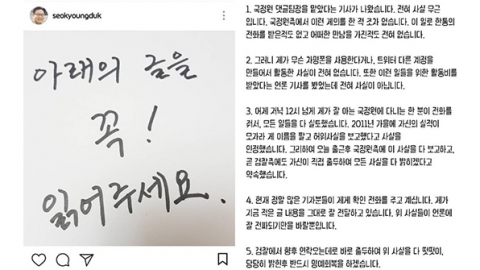 seokyoungduk
아래의 글을
꼭!
읽어주세요.
1. 국정원 댓글팀장을 맡았다는 기사가 나왔습니다. 전혀 사실 무근
입니다. 국정원측에서 이런 제의를 한 적 조차 없습니다. 이 일로 한통의
전화를 받은적도 없고 어떠한 만남을 가진적도 전혀 없습니다.
2. 그러니 제가 무슨 차명폰을 사용한다거나, 트위터 다른 계정을
만들어서 활동한 사실이 전혀 없습니다. 또한 이런 일들을 위한 활동비를
받았다는 언론 기사를 봤었는데 전혀 사실이 아닙니다.
3. 어제 저녁 12시 넘게 제가 잘 아는 국정원에 다니는 한 분이 전화를
러서, 모든 일들을 다 실토했습니다. 2011년 가을에 자신의 실적이
모자라 제 이름을 팔고 허위사실을 보고했다고 사실을
인정했습니다. 그리하여 오늘 출근후 국정원측에 이 사실을 다 보고하고,
곧 검찰측에도 자신이 직접 출두하여 모든 사실을 다 밝히겠다고
약속했습니다.
4. 현재 정말 많은 기자분들이 제게 확인 전화를 주고 계십니다. 제가
지금 적은 글 내용을 그대로 잘 전달하고 있습니다. 위 사실들이 언론에
잘 전파되기만을 바랄뿐입니다.
5. 검찰에서 향후 연락오는데로 바로 출두하여 위 사실을 다 떳떳이,
당당히 밝힌후 반드시 명예회복을 하겠습니다.